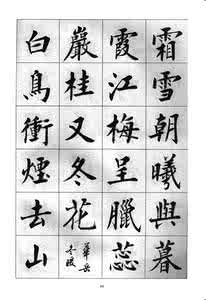 霜雪朝曦與暮
霞江梅呈臘蕊
巖桂又冬花
華岳
白鳥衝煙去山